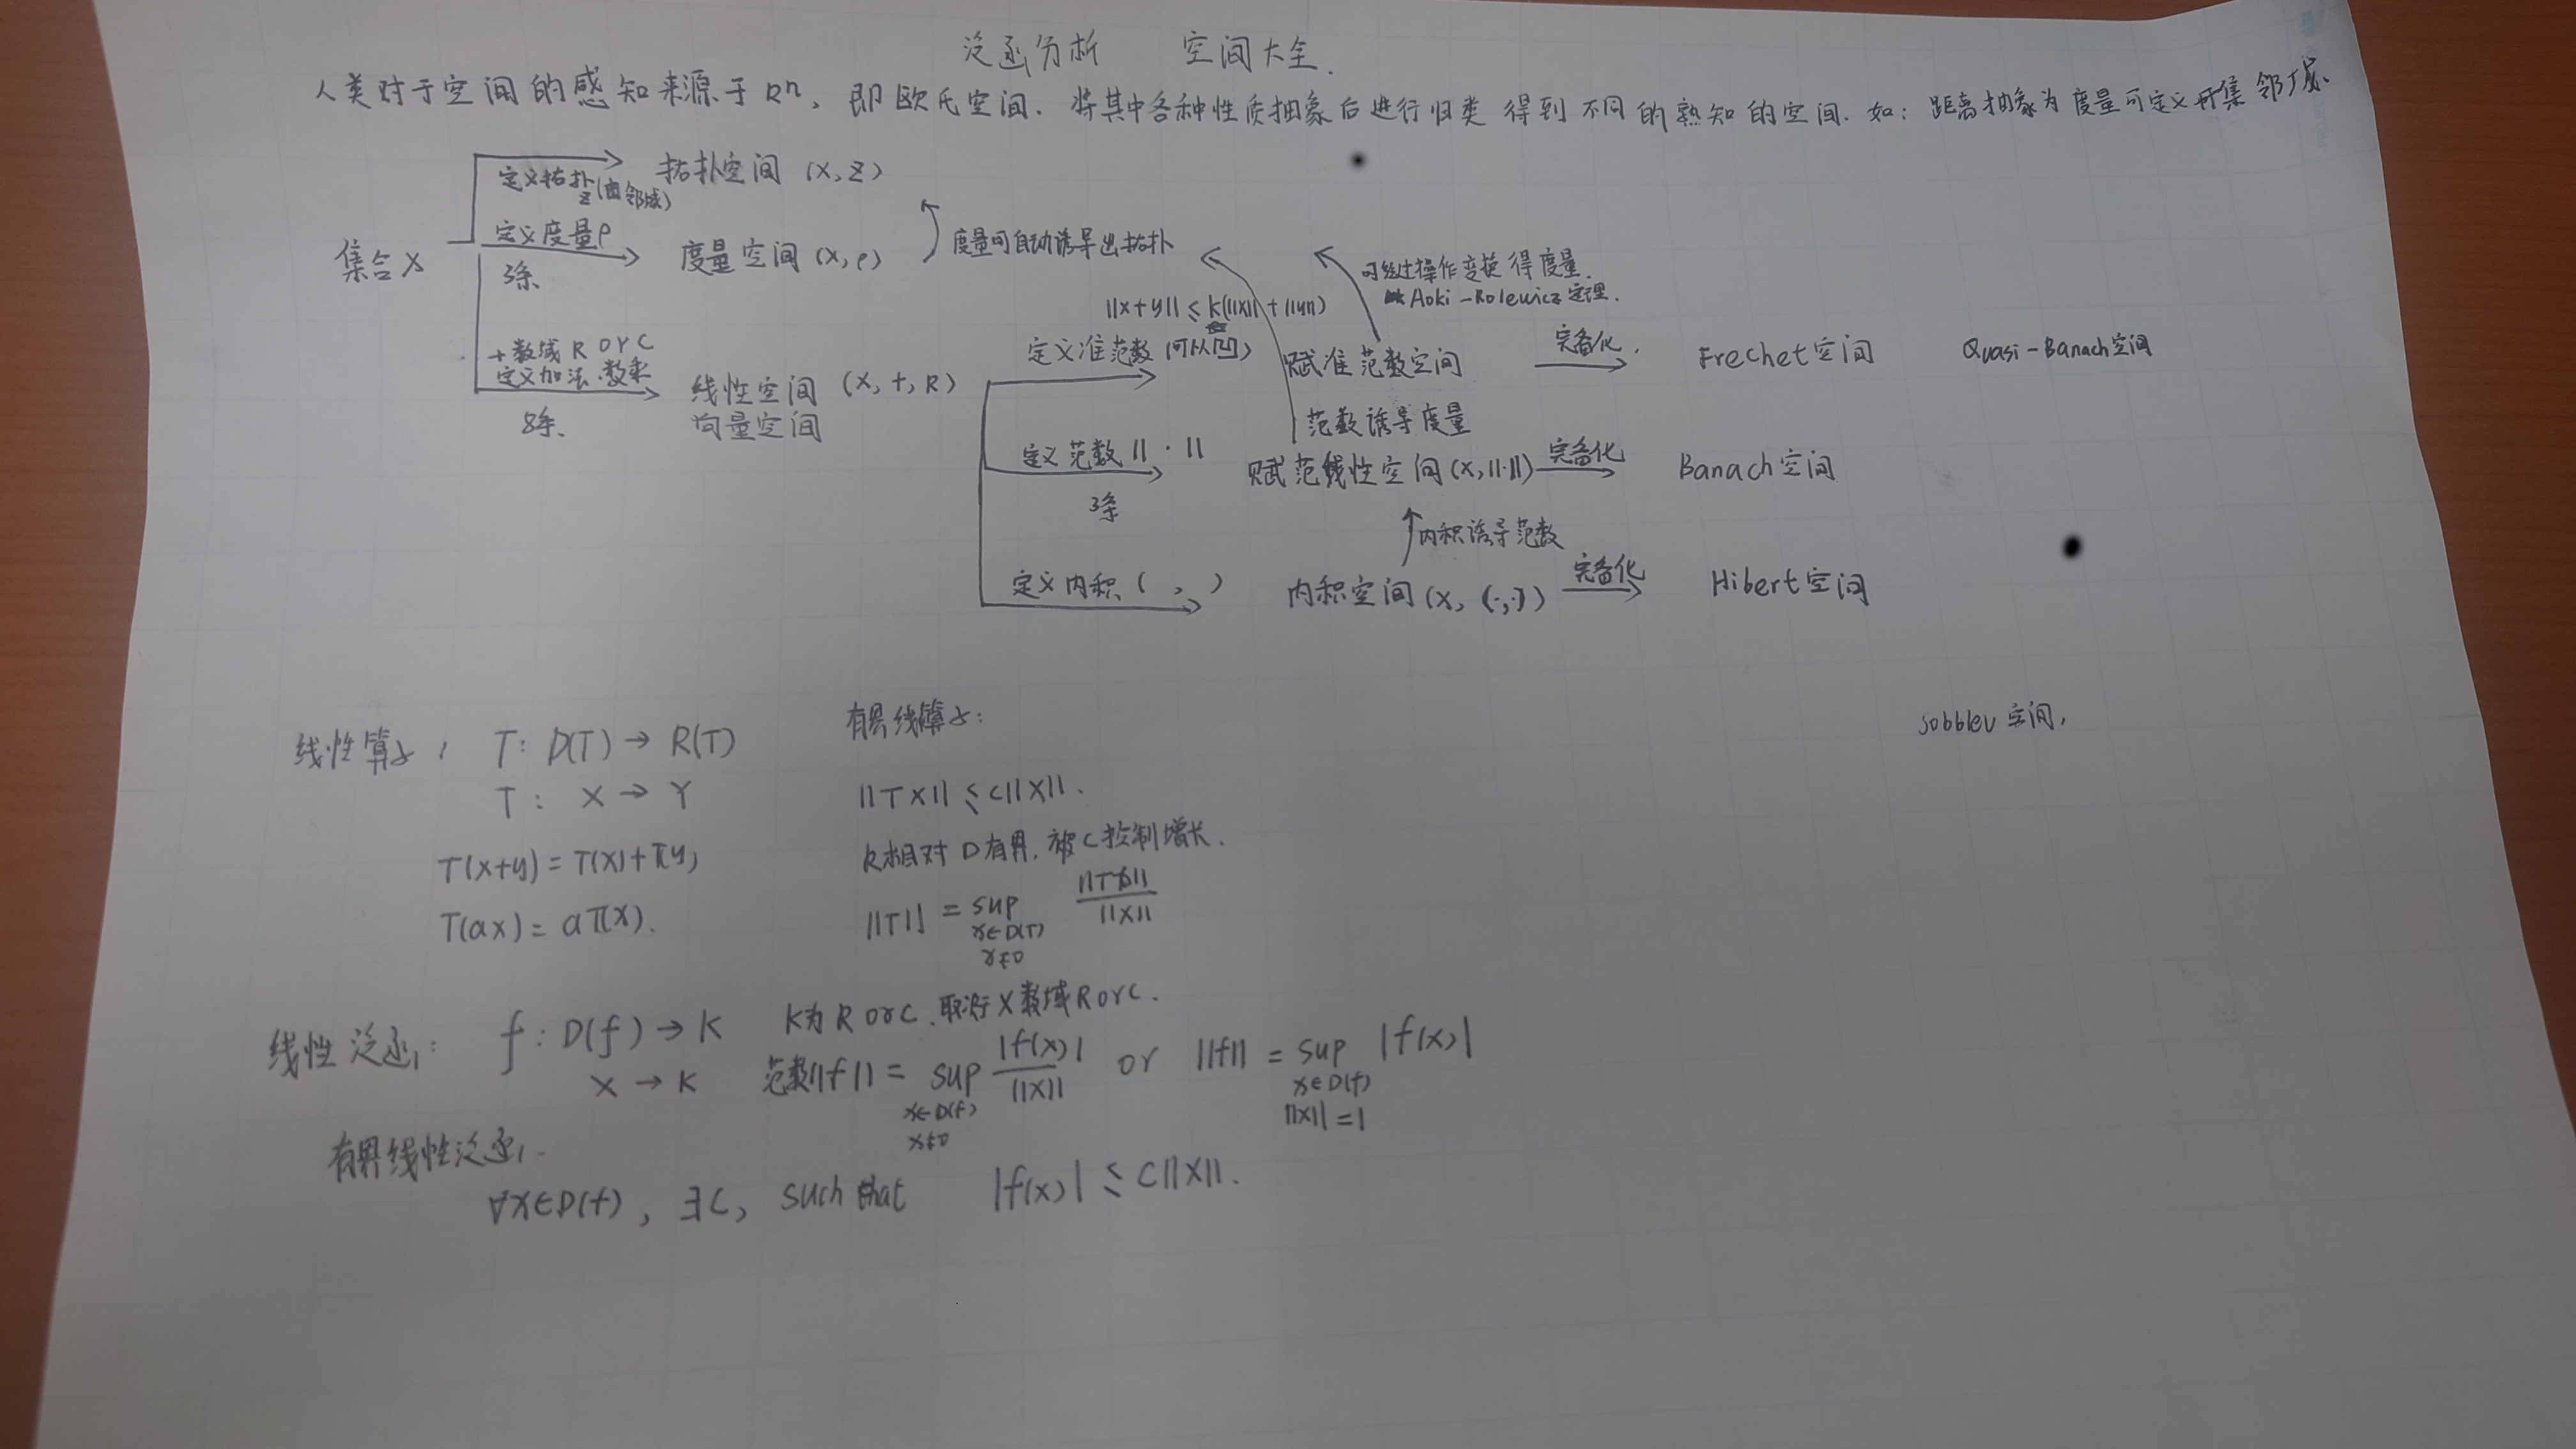 泛函分析 空间大全.
人类对于空间的感知来源于Rⁿ, 即欧氏空间. 将其中各种性质抽象后进行归类 得到不同的熟知的空间. 如: 距离抽象为度量可定义开集 邻域.
定义拓扑 z (由邻域) 拓扑空间 (X, z)
集合X 定义度量ρ 3条 度量空间 (X, ρ) 度量可自动诱导出拓扑
可经过操作变换得度量.
Aoki-Rolewicz定理.
||x+y|| ≤ k(||x|| + ||y||)
定义准范数 (可以凹) 赋准范数空间 完备化. Frechet空间 Quasi-Banach空间
+数域 R or C
定义加法.数乘
8条. 线性空间 (X, +, R)
向量空间
范数诱导度量
定义范数 ||·|| 3条 赋范线性空间 (X, ||·||) 完备化 Banach空间
内积诱导范数
定义内积 ( , ) 内积空间 (X, (·,·)) 完备化 Hibert空间
sobblev空间,
线性算子, T: D(T) → R(T)
T: X → Y
T(x+y) = T(x)+T(y)
T(ax) = aT(x).
有界线算子:
||Tx|| ≤ c||x||.
R相对D有界, 被C控制增长.
||T|| = sup x∈D(T) x≠0 ||Tx|| / ||x||
线性泛函: f: D(f) → K K为R or C. X数域R or C.
X → K 范数||f|| = sup x∈D(f) x≠0 |f(x)| / ||x|| or ||f|| = sup x∈D(f) ||x||=1 |f(x)|
有界线性泛函.
∀x∈D(f), ∃C, such that |f(x)| ≤ C||x||.